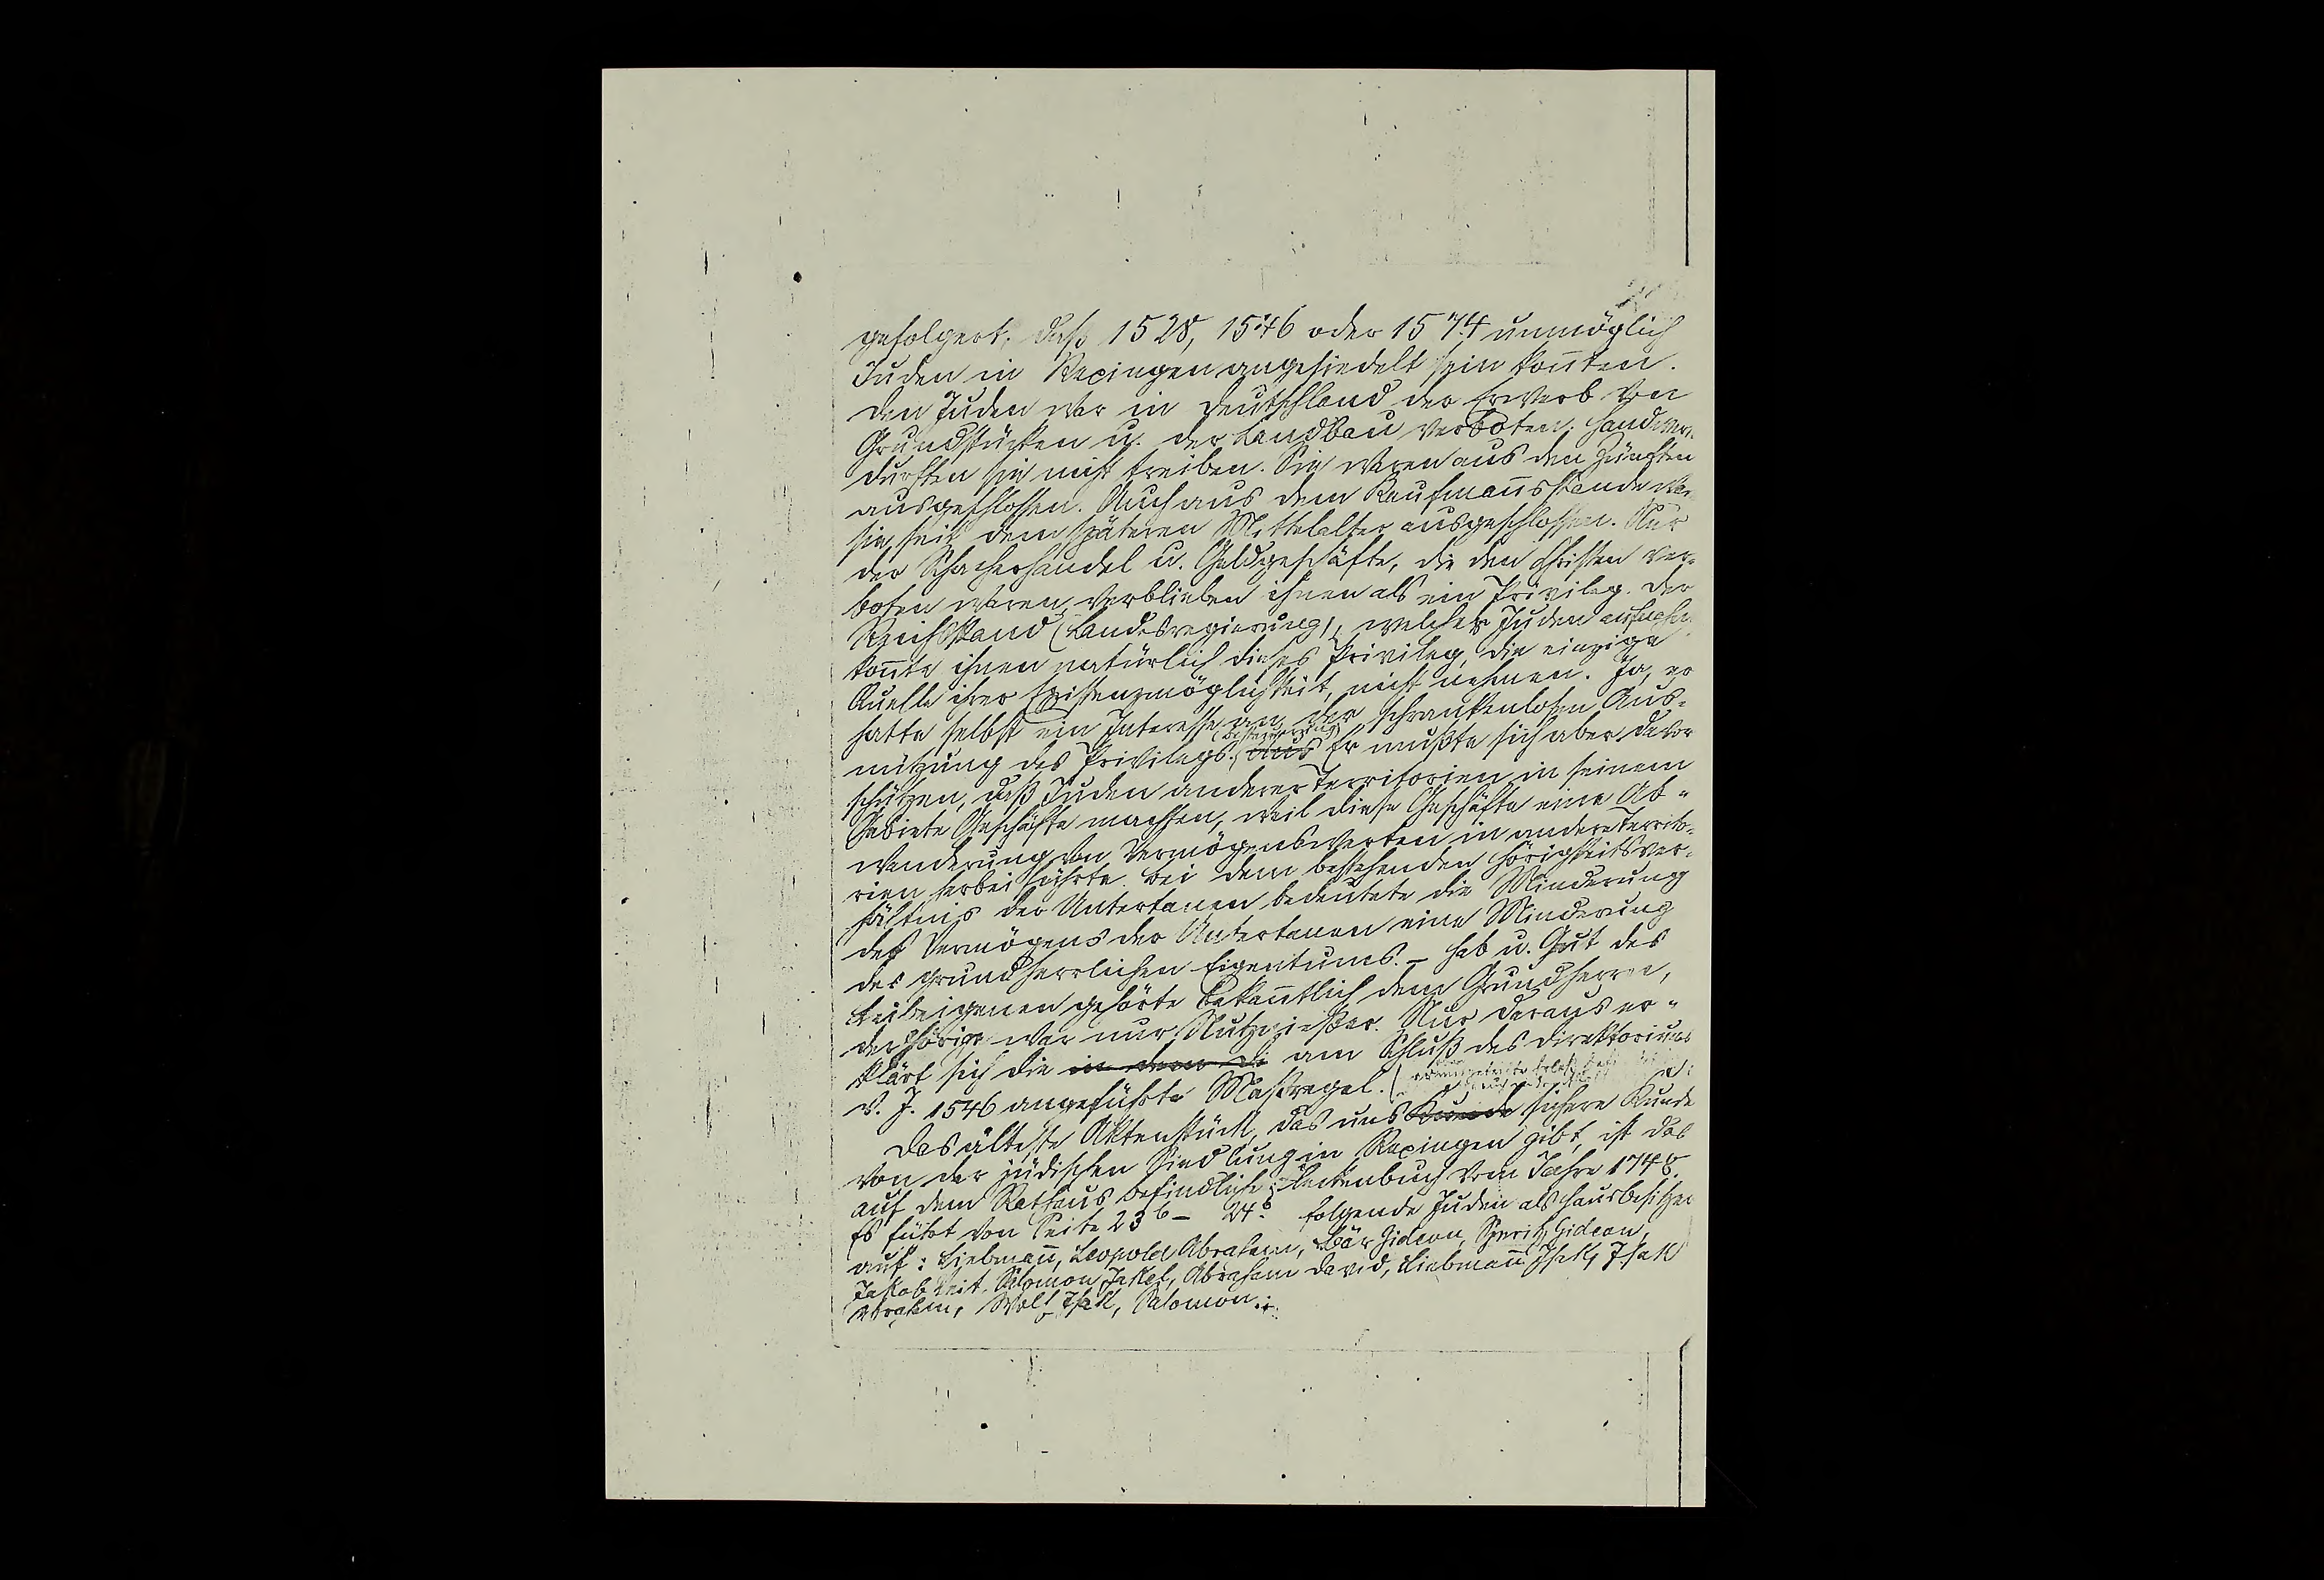 gefolgert, daß 1528, 1546 oder 1574 unmöglich
Juden in Rexingen angesiedelt sein konnten.
Den Juden war in Deutschland der Erwerb von
Grundstücken u. der Landbau verboten; Handwerk
durften sie nicht treiben. Sie waren aus den Zünften
ausgeschlossen. Auch aus dem Kaufmannsstande
sie seit dem späteren Mittelalter ausgeschlossen. Nur
der Schacherhandel u. Geldgeschäfte, die den Christen ver-
boten waren, verblieben ihnen als ein Privileg. Der
Reichsstand (Landesregierung), welcher Juden aufnahm,
konnte ihnen natürlich dieses Privileg, die einzige
Quelle ihrer Existenzmöglichkeit, nicht nehmen. Ja, er
hatte selbst ein Interesse an der schrankenlosen Aus-
(Besteuerung)
nützung des Privilegs. Er mußte sich aber davor
schützen, daß Juden anderer Territorien in seinem
Gebiete Geschäfte machten, weil diese Geschäfte eine Ab-
wanderung von Vermögenswerten in andere Territo-
rien herbei führte. Bei dem bestehenden Hörigkeitsver-
hältnis der Untertanen bedeutete die Minderung
des Vermögens der Untertanen eine Minderung
des grundherrlichen Eigentums. – Hab u. Gut des
Leibeigenen gehörte bekanntlich dem Grundherren,
der Hörige war nur Nutznießer. Nur daraus er-
klärt sich die in dem di am Schluß des Direktoriums
v. J. 1546 angeführte Maßregel. (
Das älteste Aktenstück, das uns Kunde sichere Kunde
von der jüdischen Siedlung in Rexingen gibt, ist das
auf dem Rathaus befindliche Fleckenbuch vom Jahre 1748.
Es führt von Seite 23b – 24b folgende Juden als Hausbesitzer
auf: Liebmann, Leopold Abraham, Bär Gideon, Gideon,
Jakob Veit, Salomon Jakel, Abraham David, Liebmann Isak, Isak
Abraham, Wolf Isak, Salomon.